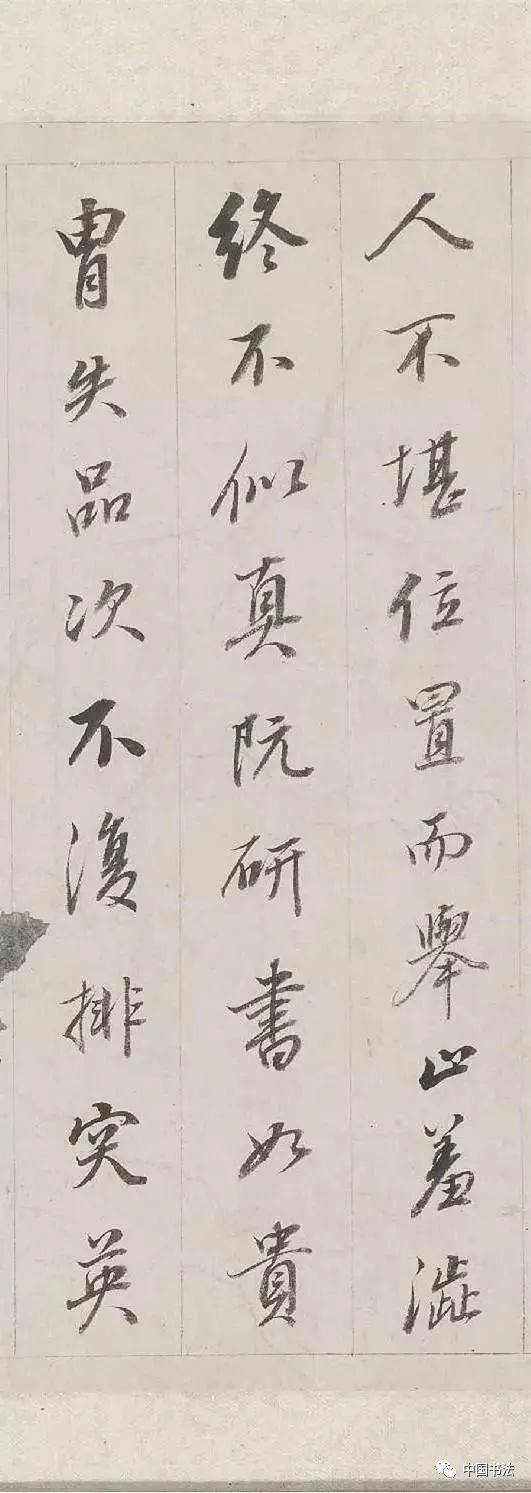 人不堪位置而舉止羞澁
終不似真阮研書如貴
胄失品次不復排突英
中国书法